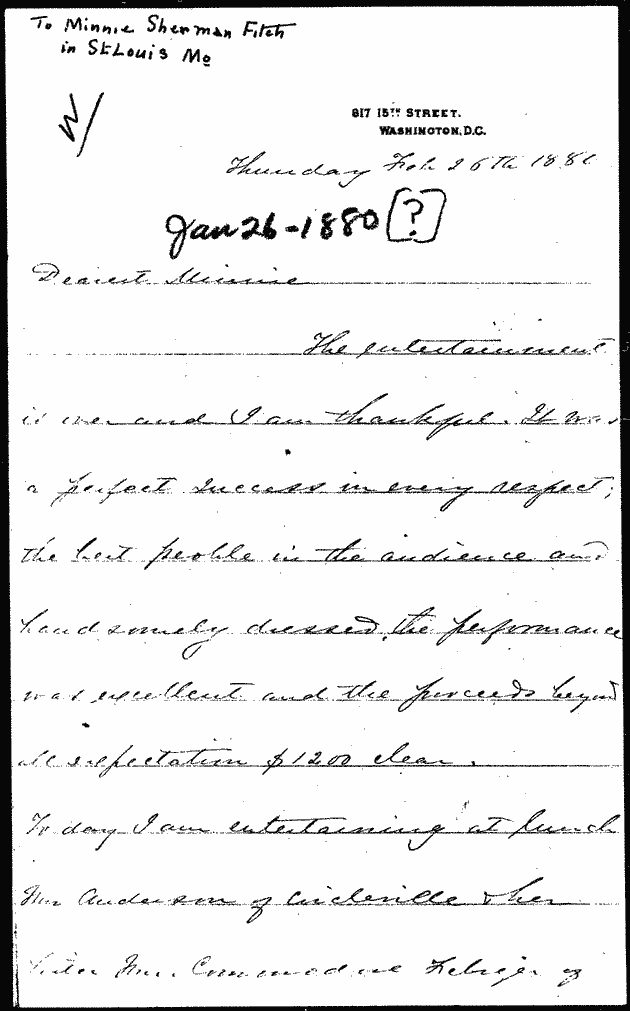 To Minnie Sherman Fitch
in St Louis Mo
W/
817 15TH STREET.
WASHINGTON, D.C.
Thursday Feb 26th 1880
Jan 26-1880 [?]
Dearest Minnie
The entertainment
is over and I am thankful. It was
a perfect success in every respect;
the best people in the audience and
handsomely dressed, the performance
was excellent and the proceeds beyond
all expectation $1200 clear.
To day I am entertaining at lunch
Mrs Anderson of Circleville & her
sister Mrs. Commodore Febiger of